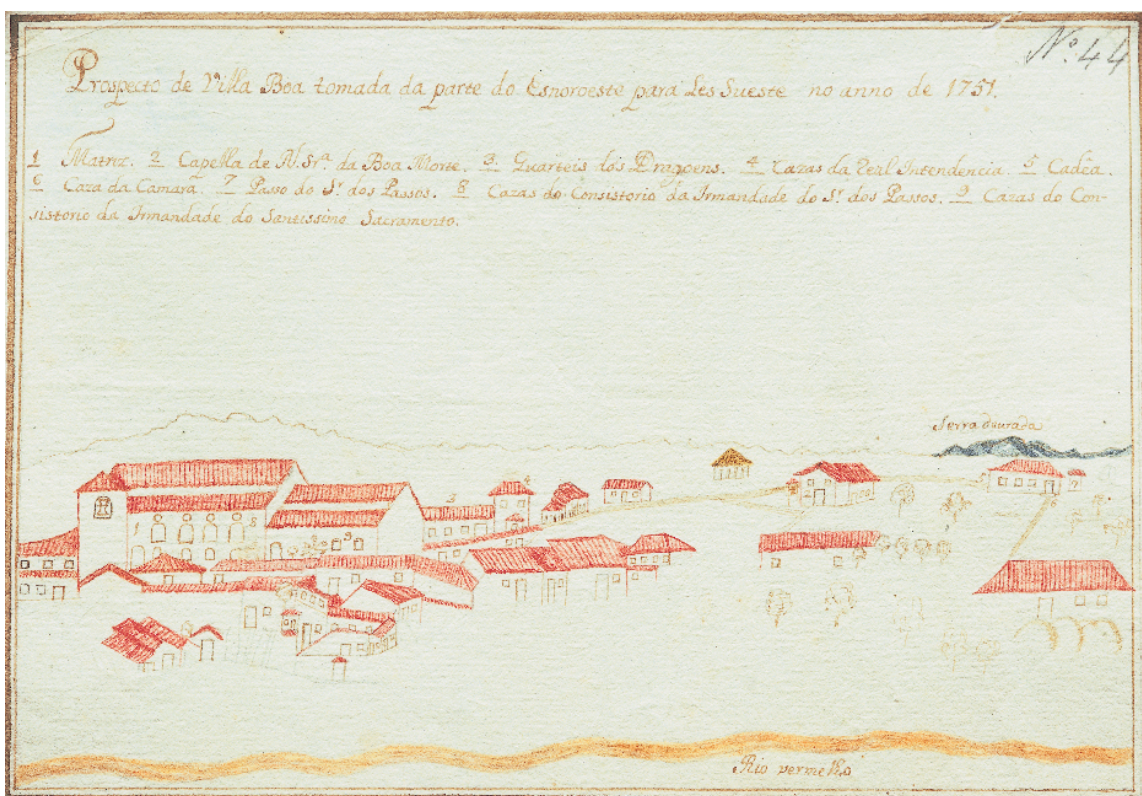 Nº. 44
Prospecto de Villa Boa tomada da parte do Esnoroeste para Les Sueste no anno de 1751.
1 Matriz. 2 Capella de N. Srª. da Boa Morte. 3. Quarteis dos Dragoens. 4 Cazas da Real Intendencia. 5 Cadêa.
6 Caza da Camara. 7 Passo do Sr. dos Passos. 8 Cazas do Consistorio da Irmandade do Sr. dos Passos. 9 Cazas do Con-
sistorio da Irmandade do Santissimo Sacramento.
Serra dourada
4
3
7
1
8
9
Rio vermelho